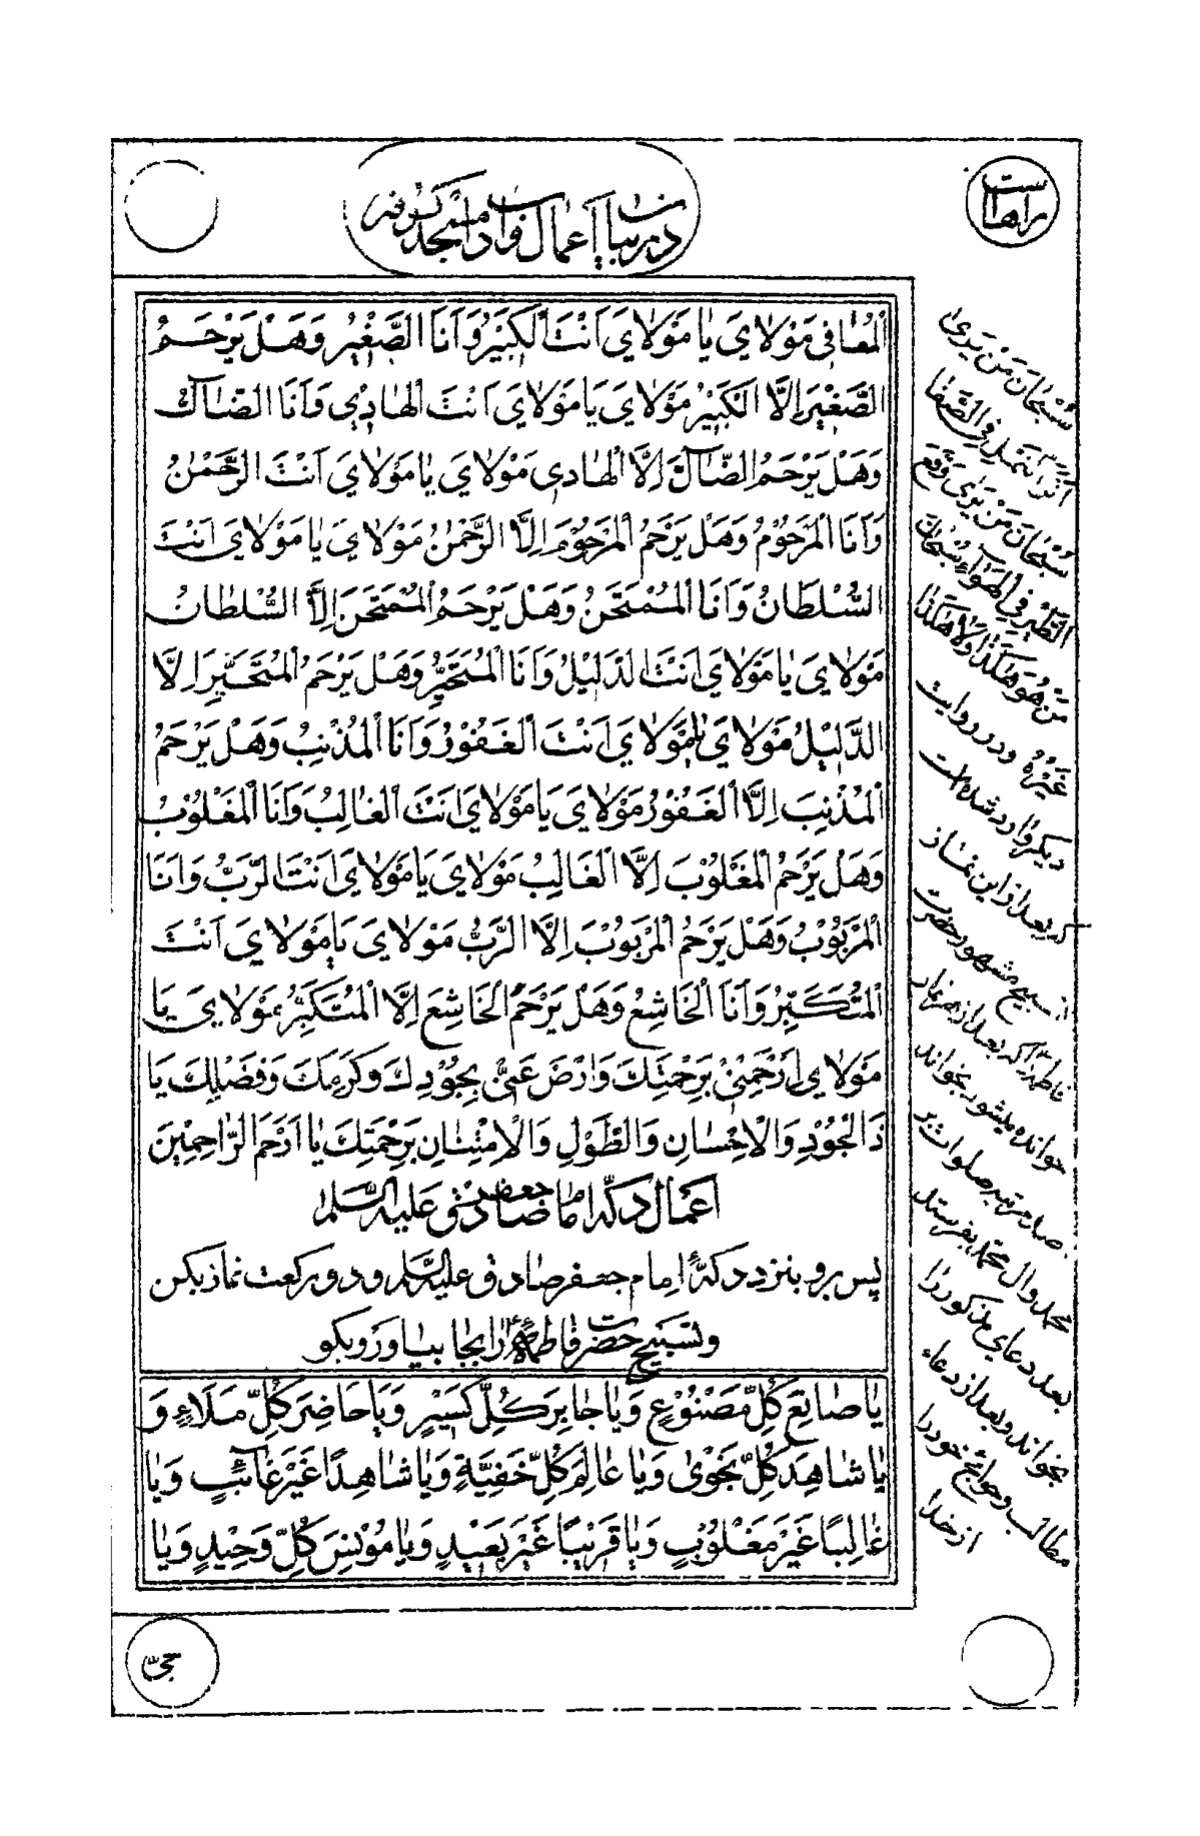 راهاست
در بیان اعمال و آداب مسجد کوفه
الْمُعافی مَوْلایَ یا مَوْلایَ اَنْتَ الْکَبیرُ وَاَنَا الصَّغیرُ وَهَلْ یَرْحَمُ
الصَّغیرَ اِلَّا الْکَبیرُ مَوْلایَ یا مَوْلایَ اَنْتَ الْهادی وَاَنَا الضّالُّ
وَهَلْ یَرْحَمُ الضّالَّ اِلَّا الْهادی مَوْلایَ یا مَوْلایَ اَنْتَ الرَّحْمٰنُ
وَاَنَا الْمَرْحُومُ وَهَلْ یَرْحَمُ الْمَرْحُومَ اِلَّا الرَّحْمٰنُ مَوْلایَ یا مَوْلایَ اَنْتَ
السُّلْطانُ وَاَنَا الْمُمْتَحَنُ وَهَلْ یَرْحَمُ الْمُمْتَحَنَ اِلَّا السُّلْطانُ
مَوْلایَ یا مَوْلایَ اَنْتَ الدَّلیلُ وَاَنَا الْمُتَحَیِّرُ وَهَلْ یَرْحَمُ الْمُتَحَیِّرَ اِلَّا
الدَّلیلُ مَوْلایَ یا مَوْلایَ اَنْتَ الْغَفُورُ وَاَنَا الْمُذْنِبُ وَهَلْ یَرْحَمُ
الْمُذْنِبَ اِلَّا الْغَفُورُ مَوْلایَ یا مَوْلایَ اَنْتَ الْغالِبُ وَاَنَا الْمَغْلُوبُ
وَهَلْ یَرْحَمُ الْمَغْلُوبَ اِلَّا الْغالِبُ مَوْلایَ یا مَوْلایَ اَنْتَ الرَّبُّ وَاَنَا
الْمَرْبُوبُ وَهَلْ یَرْحَمُ الْمَرْبُوبَ اِلَّا الرَّبُّ مَوْلایَ یا مَوْلایَ اَنْتَ
الْمُتَکَبِّرُ وَاَنَا الْخاشِعُ وَهَلْ یَرْحَمُ الْخاشِعَ اِلَّا الْمُتَکَبِّرُ مَوْلایَ یا
مَوْلایَ اِرْحَمْنی بِرَحْمَتِکَ وَارْضَ عَنّی بِجُودِکَ وَکَرَمِکَ وَفَضْلِکَ یا
ذَا الْجُودِ وَالْاِحْسانِ وَالطَّوْلِ وَالْاِمْتِنانِ بِرَحْمَتِکَ یا اَرْحَمَ الرّاحِمینَ
اعمال دکّه امام جعفر صادق علیه السّلام
پس برو بنزد دکهٔ امام جعفر صادق علیه السّلام و دو رکعت نماز بکن
و تسبیح حضرت فاطمهٔ را بجا بیاور و بگو
یا صانِعَ کُلِّ مَصْنُوعٍ وَیا جابِرَ کُلِّ کَسیرٍ وَیا حاضِرَ کُلِّ مَلَاءٍ وَ
یا شاهِدَ کُلِّ نَجْوی وَیا عالِمَ کُلِّ خَفِیَّةٍ وَیا شاهِدًا غَیْرَ غائِبٍ وَیا
غالِبًا غَیْرَ مَغْلُوبٍ وَیا قَریبًا غَیْرَ بَعیدٍ وَیا مُونِسَ کُلِّ وَحیدٍ وَیا
سُبْحانَ مَنْ یَری
اَثَرَ النَّمْلِ فِی الصَّفا
سُبْحانَ مَنْ یَری وَقْعَ
الطَّیْرِ فِی الْهَوآءِ سُبْحانَ
مَنْ هُوَ هکَذا وَلا هکَذا
غَیْرُهُ و در روایت
دیکر وارد شده است
که بعد از این نماز
تسبیح مشهور حضرت
فاطمه را که بعد از هر نماز
خوانده میشود بخواند
صد مرتبه صلوات بر
محمد و آل محمد بفرستد
بعد دعای مذکور را
بخواند و بعد از دعاء
مطالب و حوائج خود را
از خدا
حیّ